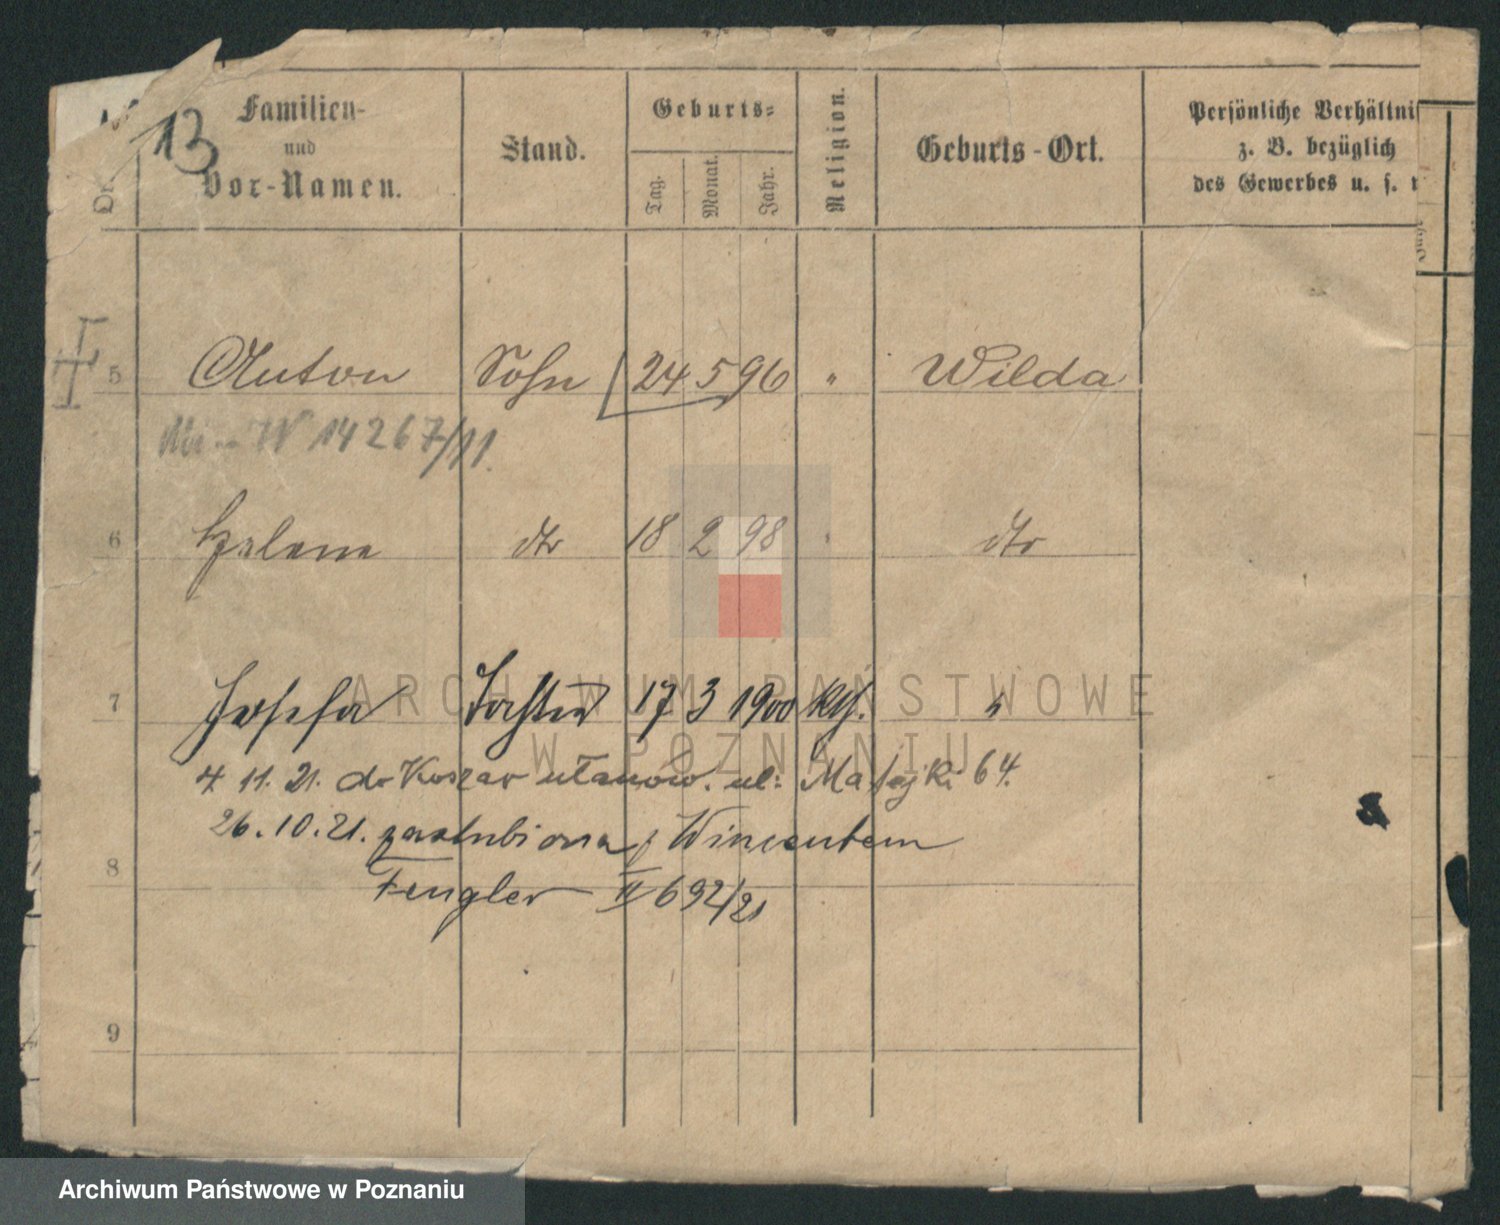 13
Familien-
und
Vor-Namen.
Stand.
Geburts-
Tag.
Monat.
Jahr.
Religion.
Geburts-Ort.
Persönliche Verhältni
z. B. bezüglich
des Gewerbes u. s.
5 Anton Sohn 24 5 96 " Wilda
14267/11.
6 Helene dto 18 2 98 " dto
7 Josefa Tochter 17 3 1900 kth. "
4. 11. 21. do Koszar ułanów. ul: Matejki 64.
26.10.21. zaślubiona z Wincentem
8
Fengler II 692/21
9
ARCHIWUM PAŃSTWOWE
W POZNANIU
Archiwum Państwowe w Poznaniu